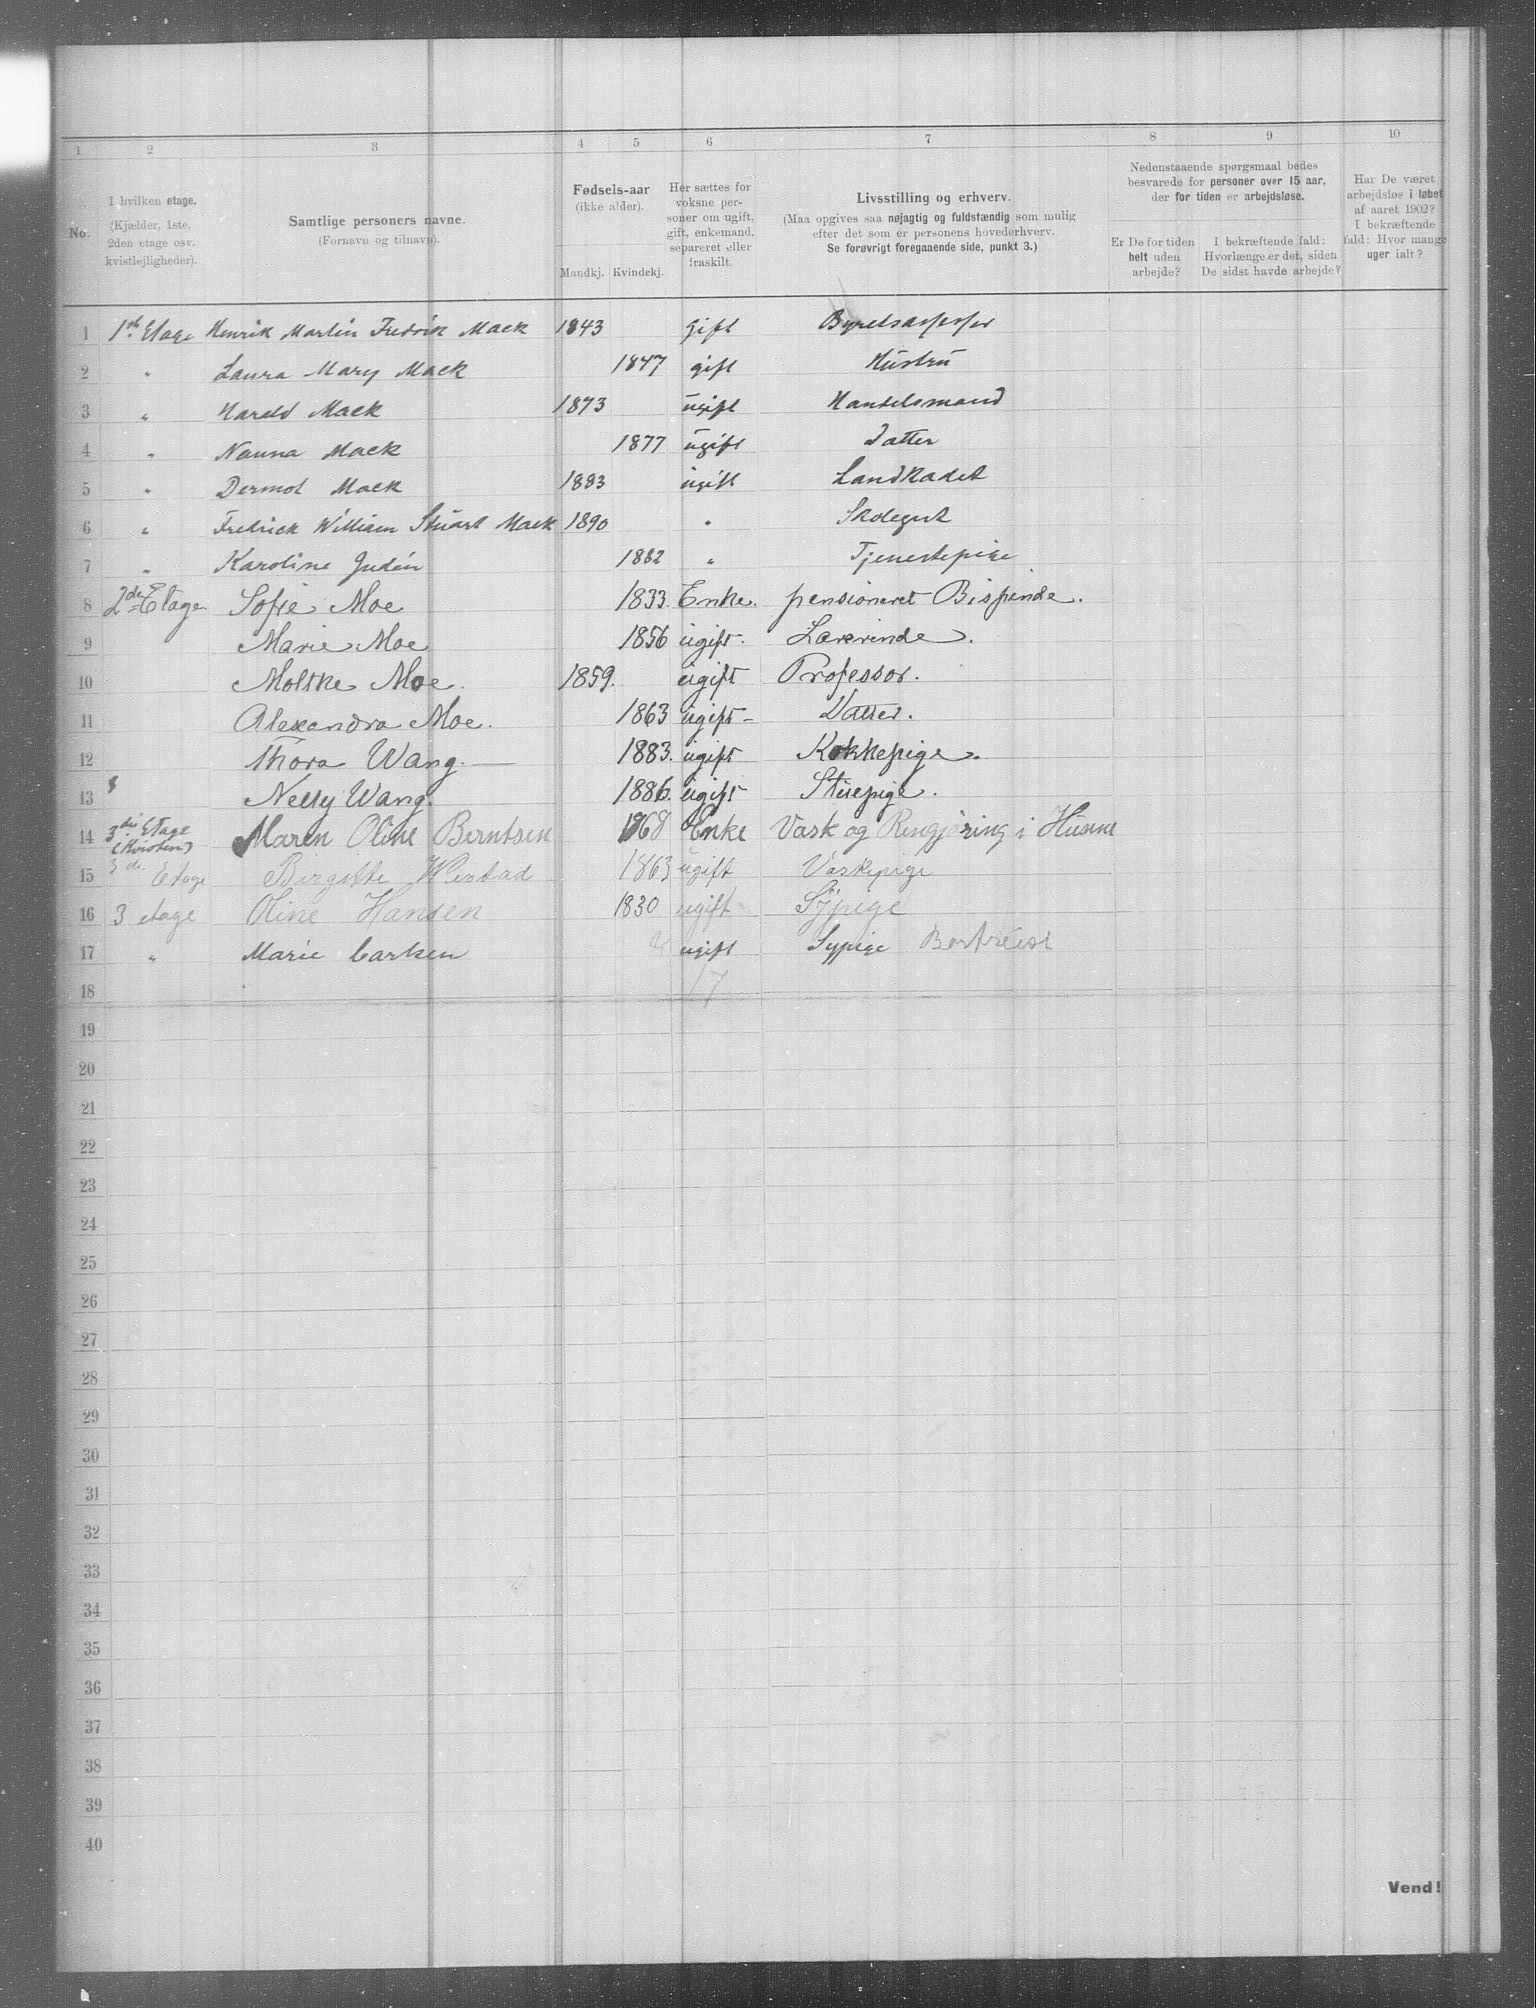 1 2 3 4 5 6 7 8 9 10
No.
I hvilken etage.
(Kjælder, 1ste,
2den etage osv.
kvistlejligheder).
Samtlige personers navne.
(Fornavn og tilnavn).
Fødsels-aar
(ikke alder).
Mandkj. Kvindekj.
Her sættes for
voksne per-
soner om ugift,
gift, enkemand,
separeret eller
fraskilt.
Livsstilling og erhverv.
(Maa opgives saa nøjagtig og fuldstændig som mulig
efter det som er personens hovederhverv.
Se forøvrigt foregaaende side, punkt 3.)
Nedenstaaende spørgsmaal bedes
besvarede for personer over 15 aar,
der for tiden er arbejdsløse.
Er De for tiden
helt uden
arbejde?
I bekræftende fald:
Hvorlænge er det, siden
De sidst havde arbejde?
Har De været
arbejdsløs i løbet
af aaret 1902?
I bekræftende
fald: Hvor mange
uger ialt?
1 1st Etage Henrik Martin Fredrik Mack 1843 gift Byretsassessor
2 " Laura Mary Mack 1847 gift Hustru
3 " Harald Mack 1873 ugift Handelsmand
4 " Nanna Mack 1877 ugift Datter
5 " Dermot Mack 1883 ugift Landkadet
6 " Fredrick William Stuart Mack 1890 " Skolegut
7 " Karoline Gudén 1882 " Tjenestepige
8 2den Etage Sofie Moe 1833 Enke. pensioneret Bispinde.
9 Marie Moe 1856 ugift. Lærerinde.
10 Moltke Moe. 1859. ugift Professor.
11 Alexandra Moe. 1863 ugift- Datter.
12 Thora Wang. 1883. ugift Kokkepige.
13 Nelly Wang. 1886. ugift Stuepige.
14 3die Etage (Kvisten) Maren Oline Berntsen 1868 Enke Vask og Rengjøring i Husene
15 3die Etage Birgitte 1863 ugift Vaskepige
16 3 etage Oline Hansen 1830 ugift Sypige
17 " Marie Carlsen ugift Sypige Bortreist
18 17
19
20
21
22
23
24
25
26
27
28
29
30
31
32
33
34
35
36
37
38
39
40
Vend!